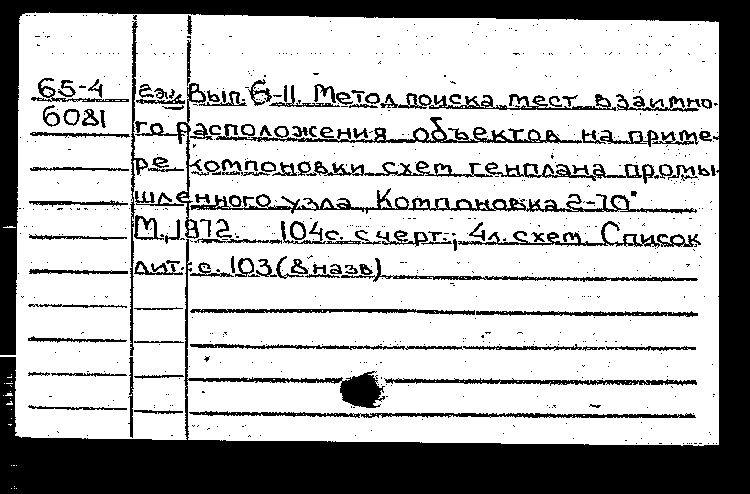 65-4
6081
Вып. 6-11. Метод поиска мест взаимно-
го расположения объектов на приме-
ре компоновки схем генплана промы-
шленного узла „Компоновка 2-70"
М., 1972. 104с. с черт.; 4л. схем. Список
лит.: с. 103 (8 назв)